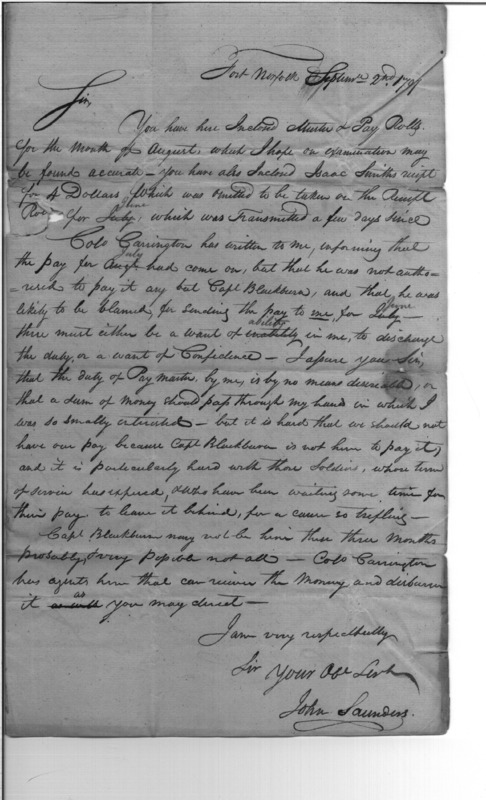 Fort Norfolk Septemr. 2nd. 1797
Sir,
You have here Inclosd Muster & Pay Rolls
for the Month of August, which I hope on examination may
be found accurate – you have also Inclosd Isaac Smiths recipt
for 4 Dollars, which was omitted to be taken on the Recipt
Roll for July, June which was Transmitted a few days since
Colo Carrington has written to me, informing that
the pay for Augt. July had come on, but that he was not autho-
=rised to pay it any but Capt Blackburn, and that he was
likely to be blamed, for sending the pay to me, for July June –
there must either be a want of ability in me, to discharge
the duty, or a want of Confidence – I assure you Sir,
that the duty of Pay master, by me, is by no means desireable, or
that a sum of money should pass through my hand in which I
was so smally interested – but it is hard that we should not
have our pay because Capt Blackburn is not here to pay it,
and it is particularly hard with those Soldiers, whose term
of service has expired, & who have been waiting some time for
their pay, to leave it behind, for a cause so trifling –
Capt Blackburn may not be here these three Months
probably, & very possible not all – Colo Carrington
has agents here that can receive the Money and disburse
it as you may direct –
I am very respectfully
Sir Your Obt Servt
John Saunders.